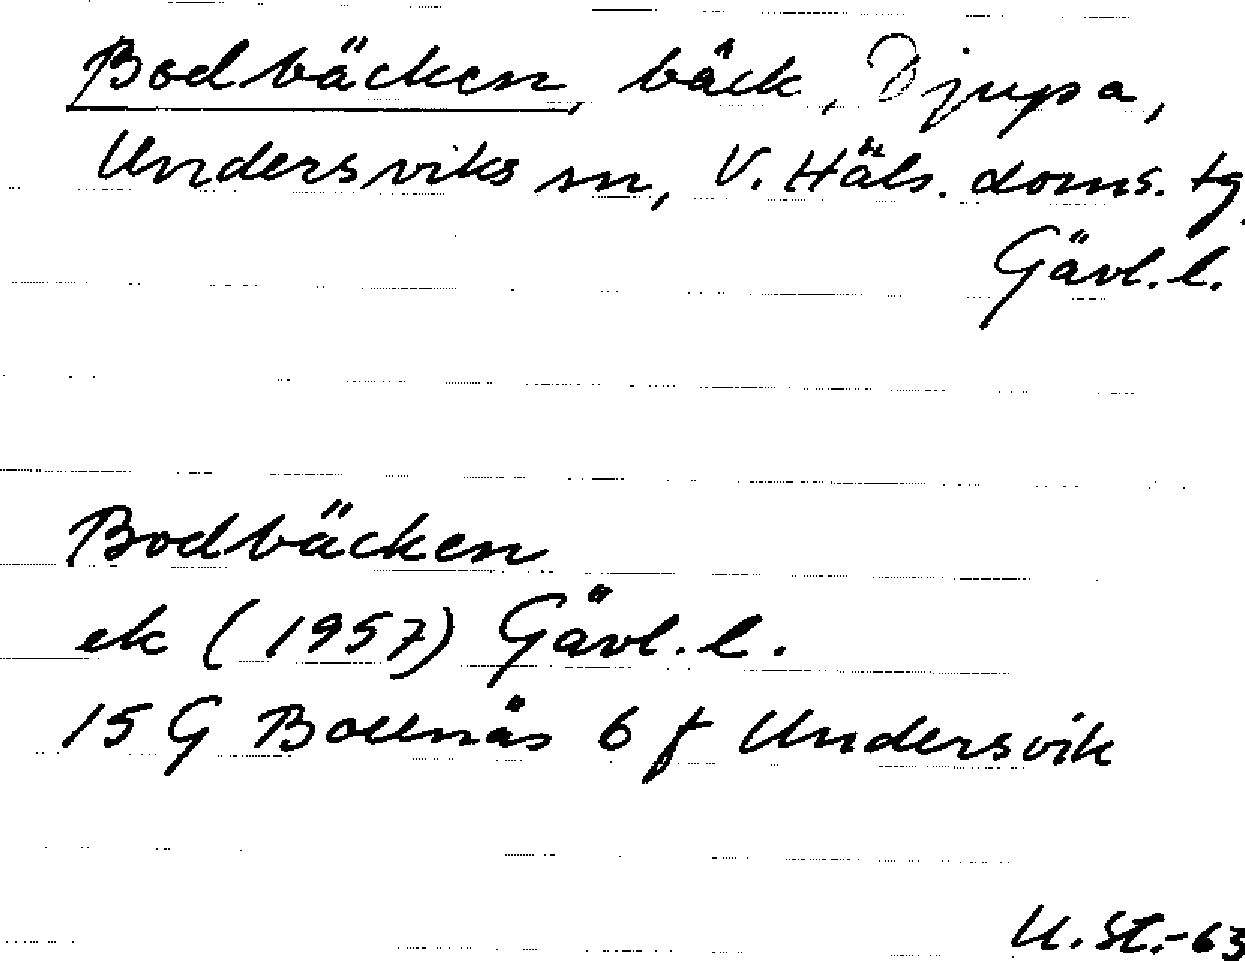 Bodbäcken, bäck, Djupa,
Undersviks sn, V. Häls. doms. tg.
Gävl. l.
Bodbäcken
ek (1957) Gävl. l.
15 G Bollnäs 6 f Undersvik
U. St.-63